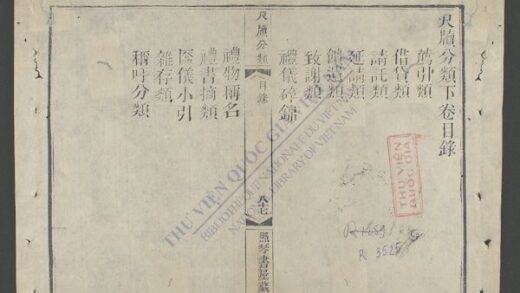 尺牘分類下卷目錄
薦引類
借貸類
請託類
延請類
餽送類
致謝類
禮儀碎錦
尺牘分類
目錄
八十七
禮物稱名
禮書摘類
匾儀小引
雜存類
稱呼分類
THƯ VIỆN QUỐC GIA VIỆT NAM
BIBLIOTHEQUE NATIONALE DU VIETNAM
NATIONAL LIBRARY OF VIETNAM
THƯ VIỆN
QUỐC GIA
R 3525